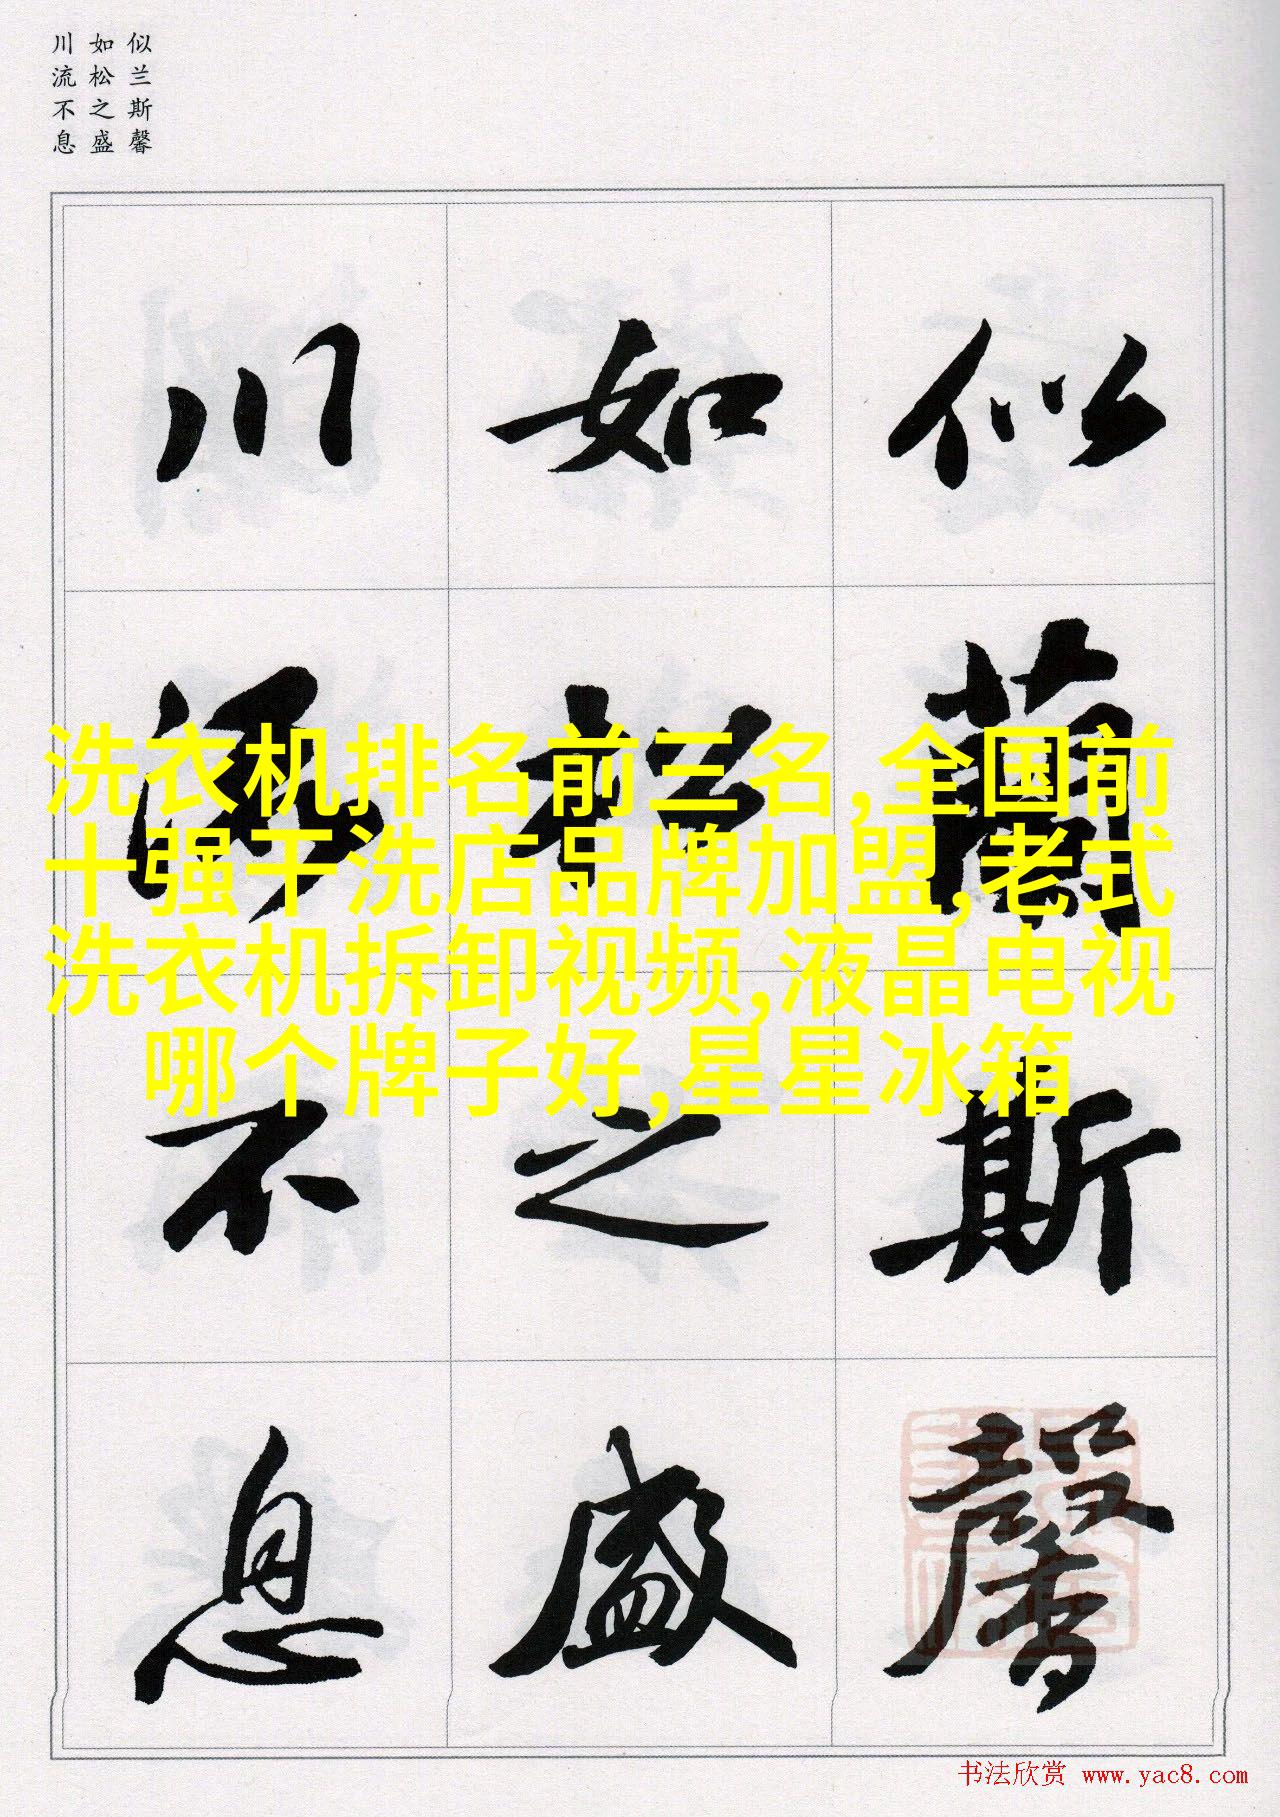 似兰斯馨
如松之盛
川流不息
似蘭斯馨
如松之盛
川流不息
洗衣机排名前三名,全国前
十强干洗店品牌加盟,老式
洗衣机拆卸视频,液晶电视
哪个牌子好,星星冰箱
书法欣赏 www.yac8.com